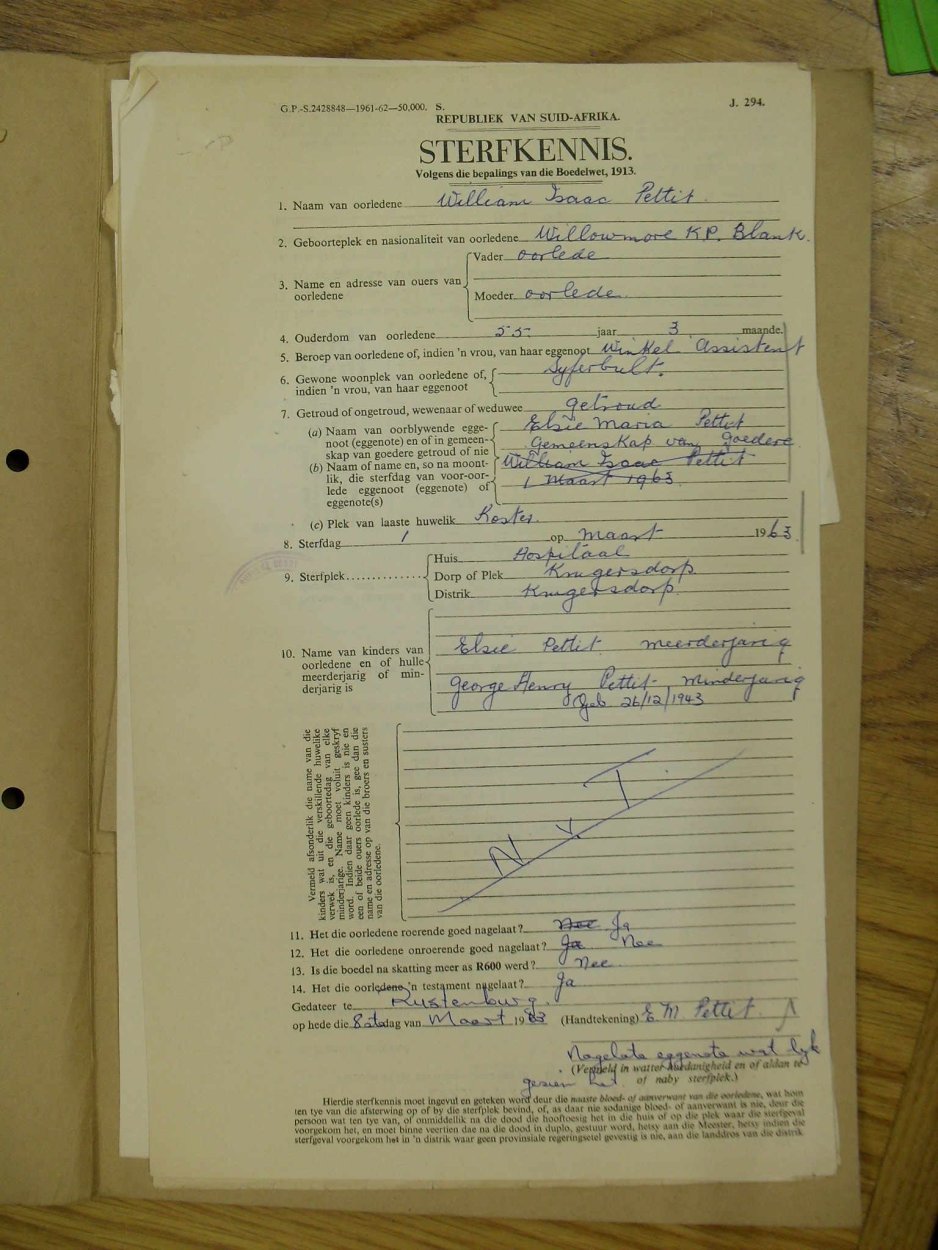 G.P.-S.2428848—1961-62—50,000. S. J. 294.
REPUBLIEK VAN SUID-AFRIKA.
STERFKENNIS.
Volgens die bepalings van die Boedelwet, 1913.
1. Naam van oorledene William Isaac Pettit
2. Geboorteplek en nasionaliteit van oorledene Willowmore K.P. Blank.
3. Name en adresse van ouers van oorledene
Vader oorlede
Moeder oorlede
4. Ouderdom van oorledene 55 jaar 3 maande.
5. Beroep van oorledene of, indien 'n vrou, van haar eggenoot Winkel Assistent
6. Gewone woonplek van oorledene of, Syferbult.
indien 'n vrou, van haar eggenoot
7. Getroud of ongetroud, wewenaar of weduwee getroud
(a) Naam van oorblywende egge- Elsie Maria Pettit
noot (eggenote) en of in gemeen- Gemeenskap van goedere
skap van goedere getroud of nie
(b) Naam of name en, so na moont- William Isaac Pettit
lik, die sterfdag van voor-oor- 1 Maart 1963
lede eggenoot (eggenote) of
eggenote(s)
(c) Plek van laaste huwelik Koster.
8. Sterfdag 1 op Maart 1963
9. Sterfplek
Huis Hospitaal
Dorp of Plek Krugersdorp
Distrik Krugersdorp
10. Name van kinders van
oorledene en of hulle
meerderjarig of min-
derjarig is
Elsie Pettit meerderjarig
George Henry Pettit - minderjarig
Geb 26/12/1943
Vermeld afsonderlik die name van die
kinders wat uit die verskillende huwelike
verwek is, en die geboortedag van elke
minderjarige. Name moet voluit geskryf
word. Indien daar geen kinders is nie en
een of beide ouers oorlede is, gee dan die
name en adresse op van die broers en susters
van die oorledene.
11. Het die oorledene roerende goed nagelaat? Nee Ja
12. Het die oorledene onroerende goed nagelaat? Ja Nee
13. Is die boedel na skatting meer as R600 werd? Nee
14. Het die oorledene 'n testament nagelaat? Ja
Gedateer te Rustenburg.
op hede die 8ste dag van Maart 1963 (Handtekening) E M Pettit
Nagelate eggenote wat lyk
(Vermeld in watter hoedanigheid en of aldan te
gesien het of naby sterfplek.)
Hierdie sterfkennis moet ingevul en geteken word deur die naaste bloed- of aanverwant van die oorledene, wat hom
ten tye van die afsterwing op of by die sterfplek bevind, of, as daar nie sodanige bloed- of aanverwant is nie, deur die
persoon wat ten tye van, of onmiddellik na die dood die hooftoesig het in die huis of op die plek waar die sterfgeval
voorgekom het, en moet binne veertien dae na die dood in duplo, gestuur word, hetsy aan die Meester, hetsy indien die
sterfgeval voorgekom het in 'n distrik waar geen provinsiale regeringsetel gevestig is nie, aan die landdros van die distrik